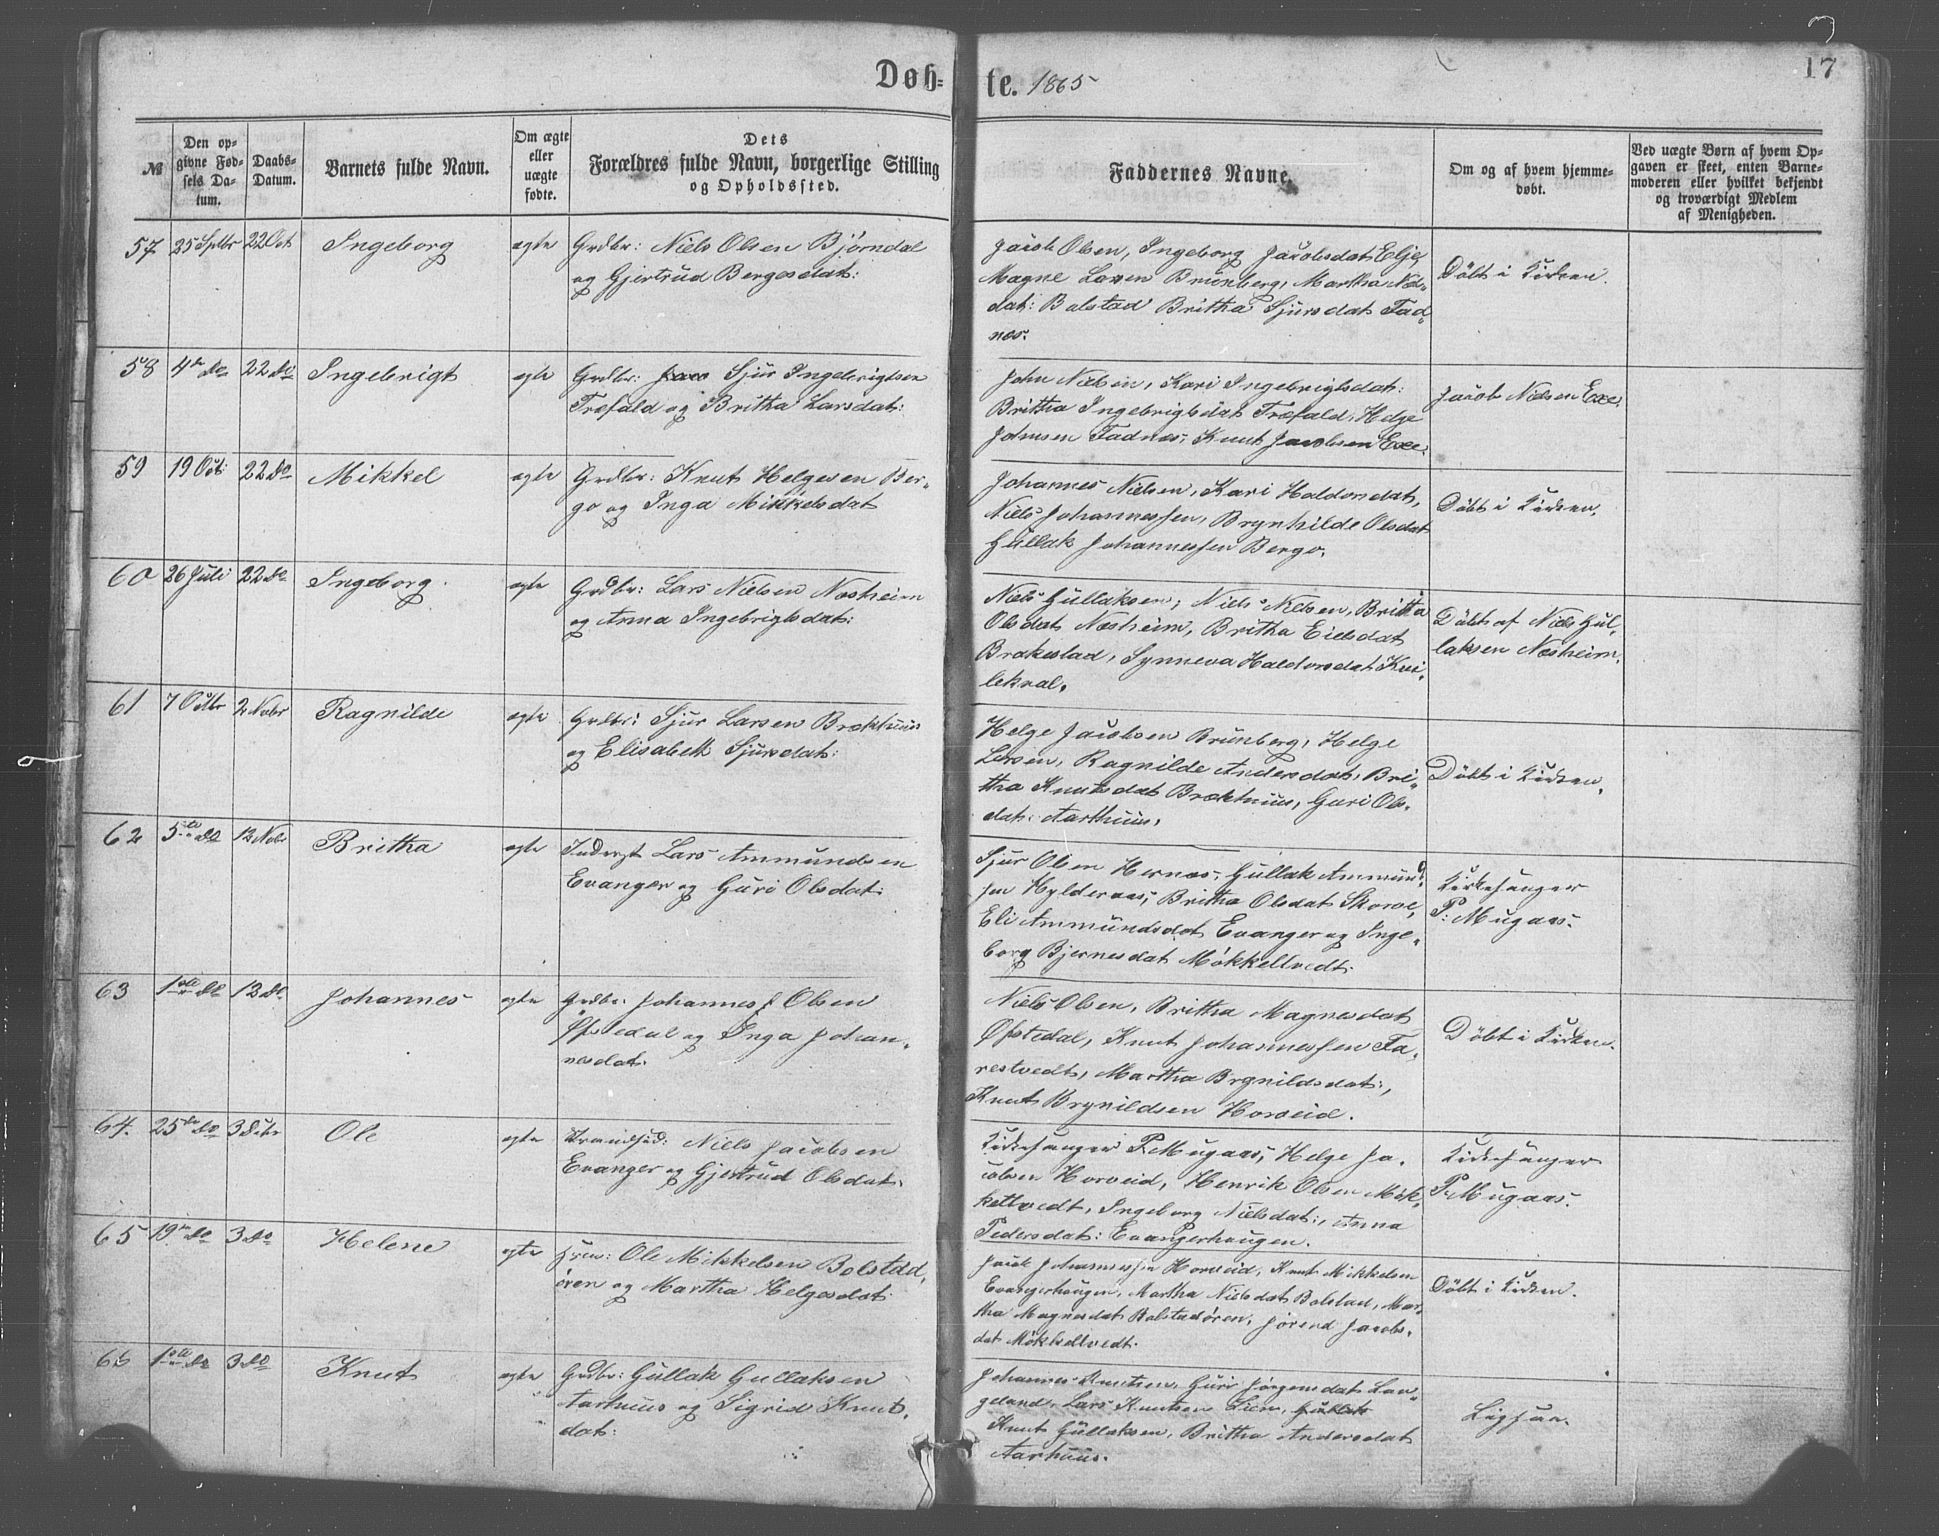 Døb=
te. 1865
17
№
Den op-
givne Fød-
sels Da-
tum.
Daabs-
Datum.
Barnets fulde Navn.
Om ægte
eller
uægte
fødte.
Dets
Forældres fulde Navn, borgerlige Stilling
og Opholdssted.
Faddernes Navne.
Om og af hvem hjemme-
døbt.
Ved uægte Børn af hvem Op-
gaven er skeet, enten Barne-
moderen eller hvilket bekjendt
og troværdigt Medlem
af Menigheden.
57 25 Sptbr 22 Oct Ingeborg ægte Grdbr: Niels Olsen Bjørndal
og Gjertrud Bergesdat:
Jacob Olsen, Ingeborg Jacobsdat
Magne Larsen Brunborg, Martha Niels-
dat: Bolstad Britha Sjursdat Fad-
nes.
Döbt i Kirken.
58 4de do 22 do Ingebrigt ægte Grdbr: Sjur Ingebrigtsen
Træfald og Britha Larsdat:
John Nielsen, Kari Ingebrigtsdat:
Britha Ingebrigtsdat Træfald, Helge
Johnsen Fadnes, Knut Jacobsen Exe.
Jacob Nielsen Exe.
59 19 Oct: 22 do Mikkel ægte Grdbr: Knut Helgesen Ber-
go og Inga Mikkelsdat
Johannes Nielsen, Kari Haldorsdat,
Niels Johannessen, Brynhilde Olsdat
Gullak Johannessen Bergo.
Döbt i Kirken.
60 26 Juli 22 do Ingeborg. ægte Grdbr: Lars Nielsen Næsheim
og Anna Ingebrigtsdat:
Niels Gullaksen, Niels Nielsen, Britha
Olsdat Næsheim, Britha Eielsdat
Brakestad, Synneva Haldorsdat Kvi-
lekval.
Döbt af Niels Gul-
laksen Næsheim.
61 7 Octbr 2 Nobr Ragnilde ægte Grdbr: Sjur Larsen Brækhuus
og Elisabeth Sjursdat:
Helge Jacobsen Brunborg, Helge
Larsen, Ragnilde Andersdat, Bri-
tha Knutsdat Brækhuus, Guri Ols-
dat: Aarhuus.
Döbt i Kirken.
62 5te do 12 Nobr Britha ægte Inderst Lars Ammundsen
Evanger og Guri Olsdat:
Sjur Olsen Hernæs, Gullak Ammund-
sen Hyldernæs, Britha Olsdat Skorve,
Eli Ammundsdat Evanger og Inge-
borg Bjernesdat Mökkeltvedt.
Kirkesanger
P: Mugaas.
63 1ste do 12 do Johannes ægte Grdbr: Johannes Olsen
Øfstedal og Inga Johan-
nesdat:
Niels Olsen, Britha Magnesdat
Øfstedal, Knut Johannessen Fa-
restvedt, Martha Brynildsdat:,
Knut Brynildsen Horveid.
Döbt i Kirken.
64. 25de do 3 Ole ægte Strandsid: Niels Jacobsen
Evanger og Gjertrud Olsdat.
Kirkesanger P. Mugaas, Helge Ja-
cobsen Horveid, Henrik Olsen Mök-
keltvedt, Ingeborg Nielsdat:, Anna
Pedersdat: Evangerhaugen.
Kirkesanger
P. Mugaas.
65 19de do 3 do Helene ægte Ole Mikkelsen Bolstad-
øren og Martha Helgesdat
Jacob Johannessen Horveid, Knut Mikkelsen
Evangerhaugen, Martha Nielsdat Bolstad, Mar-
tha Magnesdat Bolstadøren, Jorend Jacobs-
dat Mökkeltvedt.
Döbt i Kirken.
66 1ste do 3 do Knut ægte Grdbr: Gullak Gullaksen
Aarhuus og Sigrid Knut-
dat:
Johannes Knutsen, Guri Jörgensdat Lan-
geland, Lars Knutsen Liem,
Knut Gullaksen, Britha Andersdat
Aarhuus.
Ligesaa.